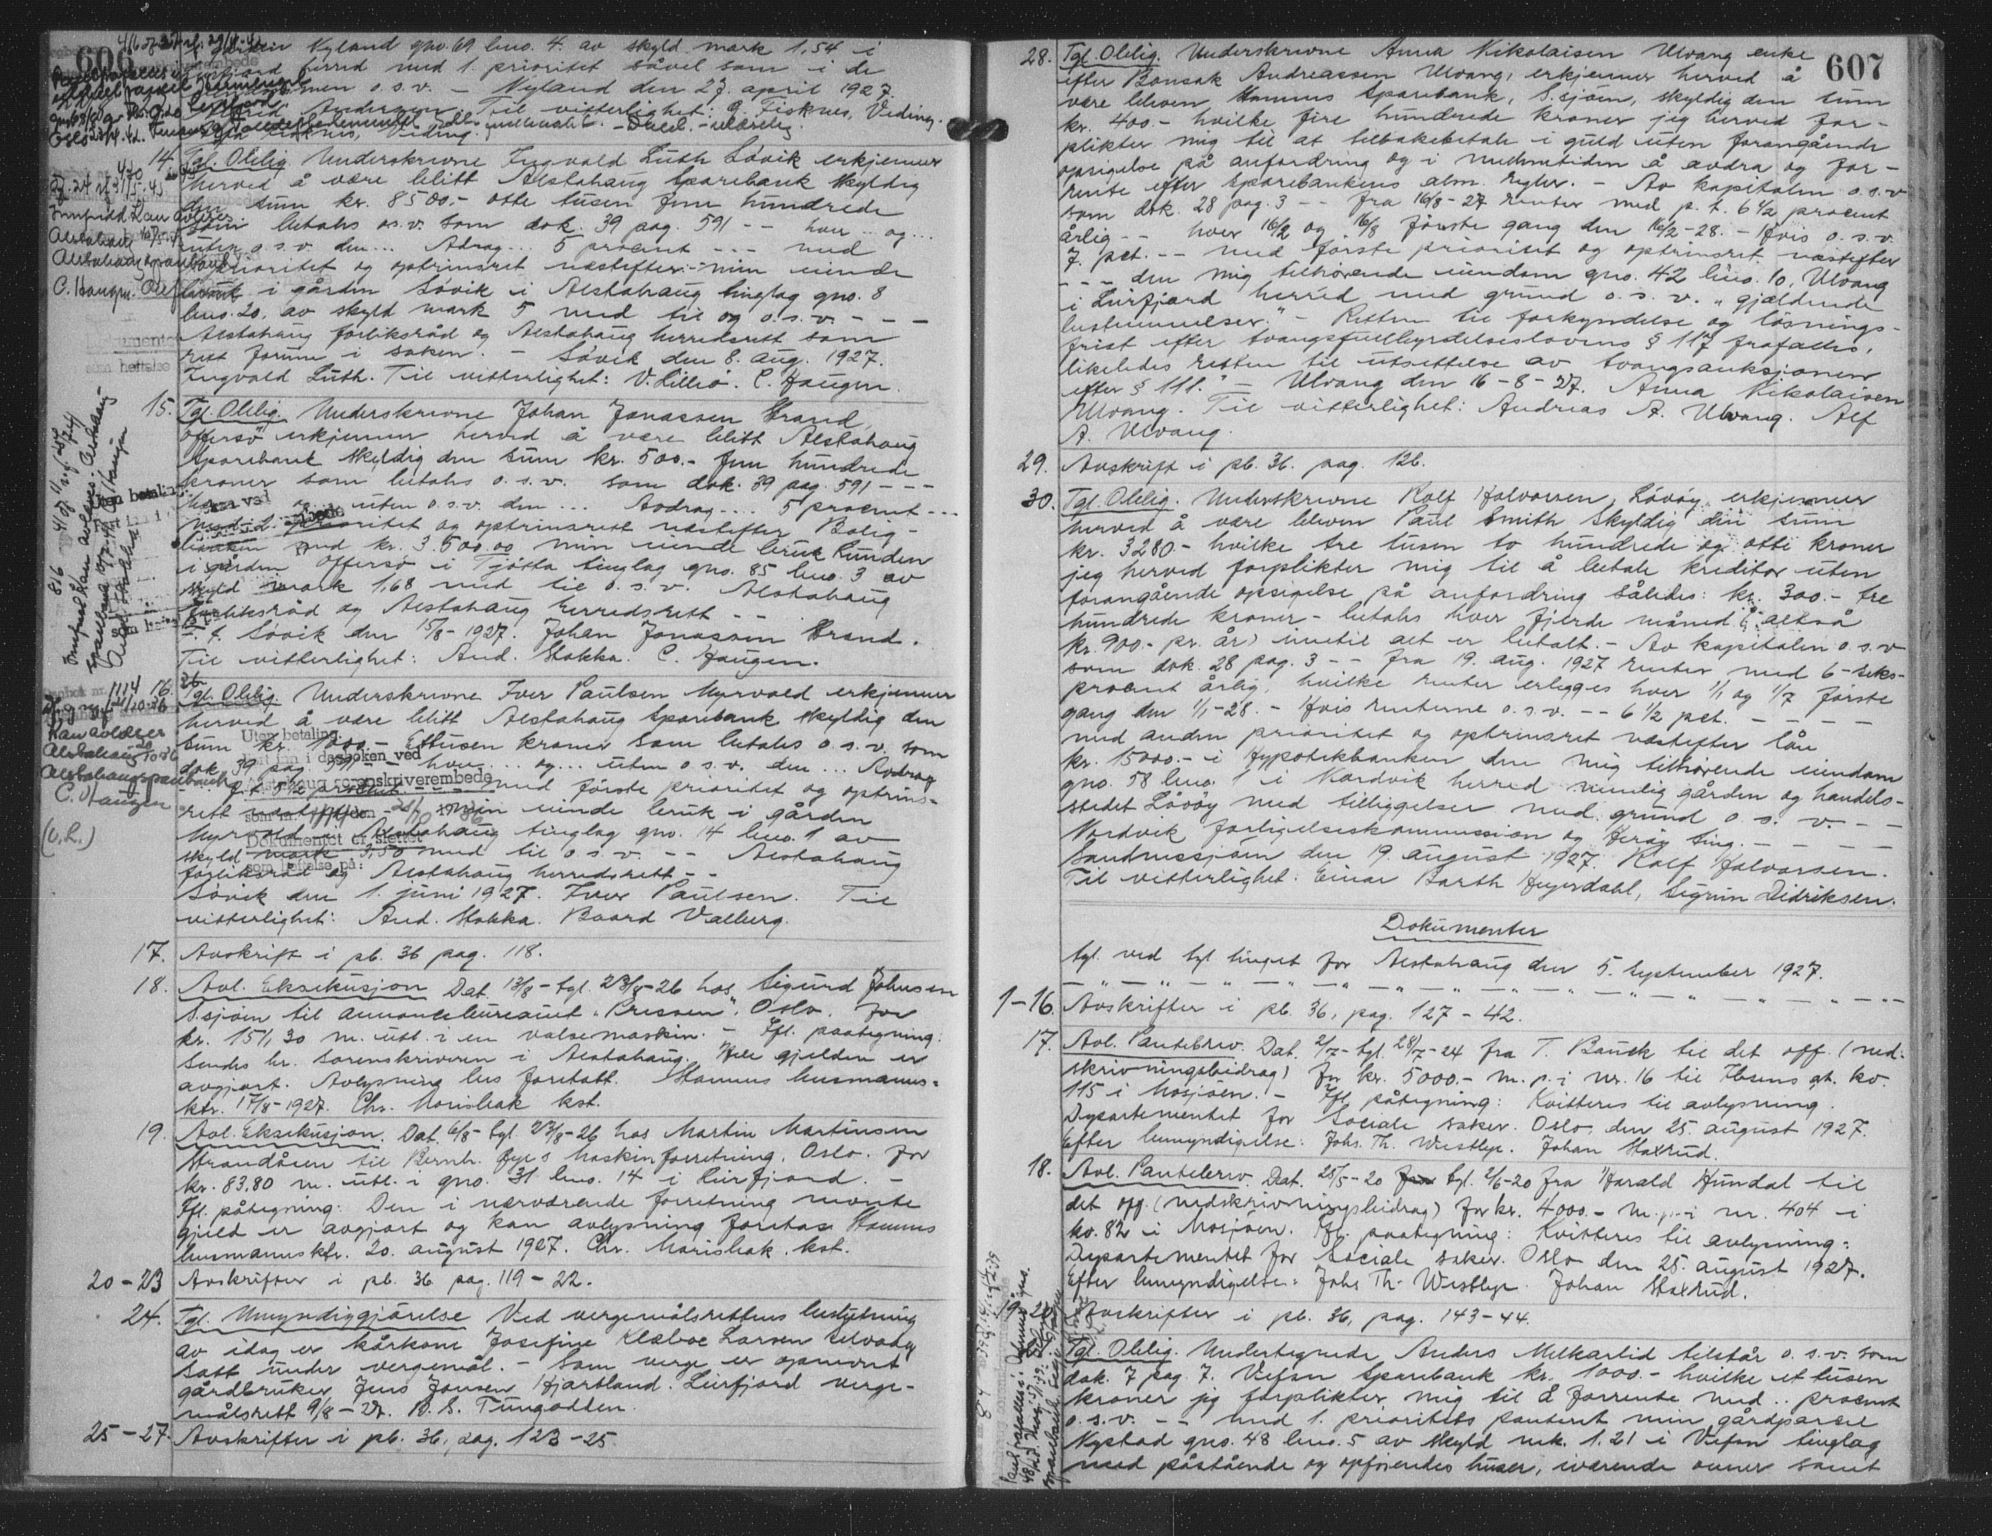 606
gården Nyland gno. 69 bno. 4. av skyld mark 1,54 i
herred med 1. prioritet såvel som i de
o.s.v. — Nyland den 27. april 1927.
Andersen. Til vitterlighet: G. Fisknes, Veding.
14. Tgl. Oblig. Underskrevne Ingvald Luth Søvik erkjenner
herved å være blitt Alstahaug Sparebank skyldig
den sum kr. 8500.- otte tusen fem hundrede
som betales o.s.v. som dok. 39 pag. 591 -- hver .. og ...
uten o.s.v. den ... Avdrag ... 5 procent --- med
prioritet og optrinsret næstefter --- min eiende
bruk i gården Søvik i Alstahaug tinglag gno. 8
bno. 20, av skyld mark 5 med til og o.s.v. - - -
Alstahaug forliksråd og Alstahaug herredsrett som
rett forum i saken. — Søvik den 8. aug. 1927.
Ingvald Luth. Til vitterlighet: V. Lillio. C. Haugen.
15. Tgl. Oblig. Underskrevne Johan Jonassen Strand,
Offersø erkjenner herved å være blitt Alstahaug
Sparebank skyldig den sum kr. 500.- fem hundrede
kroner som betales o.s.v. som dok. 39 pag. 591 - - -
hver .. og .. uten o.s.v. den ... Avdrag .... 5 procent ---
med 1. prioritet og optrinsrett næstefter Bolig-
banken med kr. 3.500,00 min eiende bruk Lunden
i gården Offersø i Tjøtta tinglag gno. 85 bno. 3 av
skyld mark 1,68 med til o.s.v. Alstahaug
forliksråd og Alstahaug herredsrett - -
p.t. Søvik den 15/8-1927. Johan Jonassen Strand.
Til vitterlighet: And. Stokka. C. Haugen.
16. Tgl. Oblig. Underskrevne Iver Paulsen Myrvold erkjenner
herved å være blitt Alstahaug Sparebank skyldig den
sum kr. 1000.- Ettusen kroner som betales o.s.v. som
dok. 39 pag. 591 -- hver ... og ... uten o.s.v. den ... Avdrag
p.t. 5½ procent --- med første prioritet og optrins-
rett næstefter --- min eiende bruk i gården
Myrvold i Alstahaug tinglag gno. 14 bno. 1 av
skyld mark med til o.s.v. -- Alstahaug
forliksråd og Alstahaug herredsrett - -
Søvik den 1 juni 1927. Iver Paulsen. Til
vitterlighet: And. Stokka. Baard Valberg.
Uten betaling.
ført inn i dagboken ved
Alstahaug sorenskriverembede
Dokumentet er slettet
som heftelse på:
17. Avskrift i pb. 36 pag. 118.
18. Avl. Eksekusjon Dat. 13/8 - tgl. 23/8-26 hos Sigurd Johnsen
S.sjøen til annoncebureauet "Pressen", Oslo. for
kr. 151,30 m. utl. i en valsemaskin. — Ifl. paategning:
Sendes hr. sorenskriveren i Alstahaug. Hele gjelden er
avgjort. Avlysning bes foretatt. Stamnes lensmanns-
ktr. 17/8-1927. Chr. Morisbak kst.
19. Avl. Eksekusjon. Dat. 6/8- tgl. 23/8-26 hos Martin Martinsen
Strandåsen til Bernh. Fyes Maskinforretning, Oslo. for
kr. 83,80 m. utl. i gno. 31 bno. 14 i Leirfjord. —
Ifl. påtegning: Den i nærværende forretning nevnte
gjeld er avgjort og kan avlysning foretas. Stamnes
lensmannsktr. 20. august 1927. Chr. Morisbak. kst.
20-23 Avskrifter i pb. 36 pag. 119-22.
24. Tgl. Umyndiggjørelse Ved vergemålsrettens beslutning
av idag er kårkone Josefine Klæboe Larsen Selvaag
satt under vergemål. — Som verge er opnevnt
gårdbruker Jens Jensen Hjartland. Leirfjord verge-
målsrett 9/8-27. B. S. Tungodden.
25-27. Avskrifter i pb. 36, pag. 123-25
607
28. Tgl. Oblig. Underskrevne Anna Nikolaisen Ulvang enke
efter Bonsak Andreassen Ulvang, erkjenner herved å
være bleven Stamnes Sparebank, S.sjøen, skyldig den sum
kr. 400.- hvilke fire hundrede kroner jeg herved for-
plikter mig til at tilbakebetale i guld uten forangående
opsigelse på anfordring og i mellemtiden å avdra og for-
rente efter sparebankens alm. regler. — Av kapitalen o.s.v.
som dok. 28 pag. 3 -- fra 16/8-27 renter med p.t. 6½ procent
årlig -- hver 16/2 og 16/8 første gang den 16/2-28. - Hvis o.s.v.
7 pct. -- med første prioritet og optrinsret næstefter
--- den mig tilhørende eiendom gno. 42 bno. 10, Ulvang
i Leirfjord herred med grund o.s.v. "gjældende
bestemmelser." — Retten til forkyndelse og løsnings-
frist efter tvangsfuldbyrdelseslovens § 117 frafaldes,
likeledes retten til utsettelse av tvangsauksjonen
efter § 111. — Ulvang den 16-8-27. Anna Nikolaisen
Ulvang. Til vitterlighet: Andreas A. Ulvang. Alf
A. Ulvang.
29. Avskrift i pb. 36. pag. 126.
30. Tgl. Oblig. Underskrevne Rolf Halvorsen, Løvøy erkjenner
herved å være bleven Paul Smith skyldig den sum
kr. 3280- hvilke tre tusen to hundrede og otti kroner
jeg herved forplikter mig til å betale kreditor uten
forangående opsigelse på anfordring således: kr. 300.- tre
hundrede kroner - betales hver fjerde måned (: altså
kr. 900.- pr. år) inntil alt er betalt. — Av kapitalen o.s.v.
som dok. 28 pag. 3 -- fra 19. aug. 1927 renter med 6-seks-
procent årlig, hvilke renter erlegges hver 1/1 og 1/7 første
gang den 1/1-28. - Hvis renterne o.s.v. -- 6½ pct. - - - -
med anden prioritet og optrinsret næstefter lån
kr. 15000.- i Hypotekbanken den mig tilhørende eiendom
gno. 58 bno. 1 i Nordvik herred nemlig gården og handels-
stedet Løvøy med tilliggelser med grund o.s.v. - -
Nordvik forligelseskommission og Herøy ting. - - - -
Sandnessjøen den 19. august 1927. Rolf Halvorsen.
Til vitterlighet: Einar Barth Heyerdahl, Sigrun Didriksen.
Dokumenter
tgl. ved tgl. tinget for Alstahaug den 5. September 1927.
1-16. Avskrifter i pb. 36, pag. 127-42.
17. Avl. Pantebrev. Dat. 2/7- tgl. 28/7-24 fra T. Bauck til det off. (ned-
skrivningsbidrag) for kr. 5000.- m.p. i nr. 16 til Ibsens gt. kv.
115 i Mosjøen. — Ifl. påtegning: Kvitteres til avlysning.
Departementet for Sociale saker. Oslo, den 25. august 1927.
Efter bemyndigelse: Johs. Th. Westbye. Johan Haxrud.
18. Avl. Pantebrev. Dat. 25/5-20 tgl. 2/6-20 fra Harald Hundal til
det off. (nedskrivningsbidrag) for kr. 4000.- m.p. i nr. 404 i
kv. 82 i Mosjøen. Ifl. paategning: Kvitteres til avlysning:
Departementet for sociale saker. Oslo den 25. august 1927.
Efter bemyndigelse: Johs. Th. Westbye. Johan Haxrud.
19. Avskrifter i pb. 36, pag. 143-44.
20. Tgl. Oblig. Undertegnede Anders Melkarlid tilstår o.s.v. som
dok. 7 pag. 7. Vefsn Sparebank kr. 1000.- hvilke et tusen
kroner jeg forplikter mig til å forrente med .. procent
o.s.v. -- med 1. prioritets panteret min gårdparcel
Nystad gno. 48 bno. 5 av skyld mk. 1.21 i Vefsn tinglag
med påstående og opførendes huser, iværende ovner samt